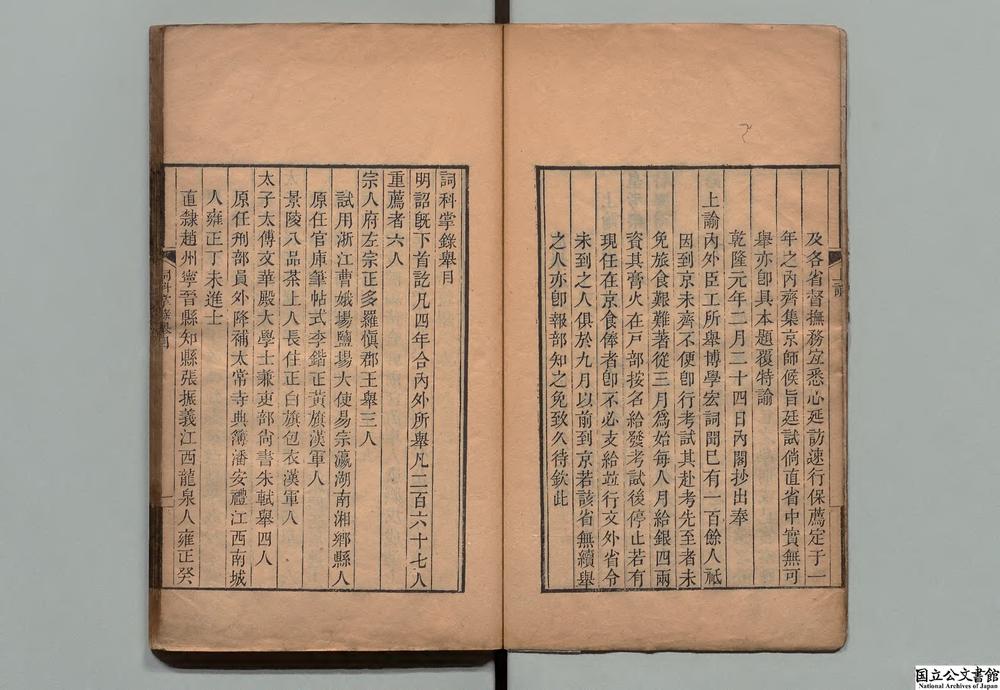 及各省督撫務宜悉心延訪速行保薦定于一
年之內齊集京師候旨廷試倘直省中實無可
舉亦卽具本題覆特諭
乾隆元年二月二十四日內閣抄出奉
上諭內外臣工所舉博學宏詞聞已有一百餘人祗
因到京未齊不便卽行考試其赴考先至者未
免旅食艱難著從三月爲始每人月給銀四兩
資其膏火在戸部按名給發考試後停止若有
現任在京食俸者卽不必支給竝行文外省令
未到之人俱於九月以前到京若該省無續舉
之人亦卽報部知之免致久待欽此
上諭
詞科掌錄舉目
明詔旣下首訖凡四年合內外所舉凡二百六十七人
重薦者六人
宗人府左宗正多羅愼郡王舉三人
試用浙江曹娥場鹽場大使易宗瀛湖南湘鄉縣人
原任官庫筆帖式李鍇正黃旗漢軍人
景陵八品茶上人長住正白旗包衣漢軍人
太子太傅文華殿大學士兼吏部尙書朱軾舉四人
原任刑部員外降補太常寺典簿潘安禮江西南城
人雍正丁未進士
直隸趙州寧晉縣知縣張振義江西龍泉人雍正癸
詞科掌錄舉目
一
国立公文書館
National Archives of Japan